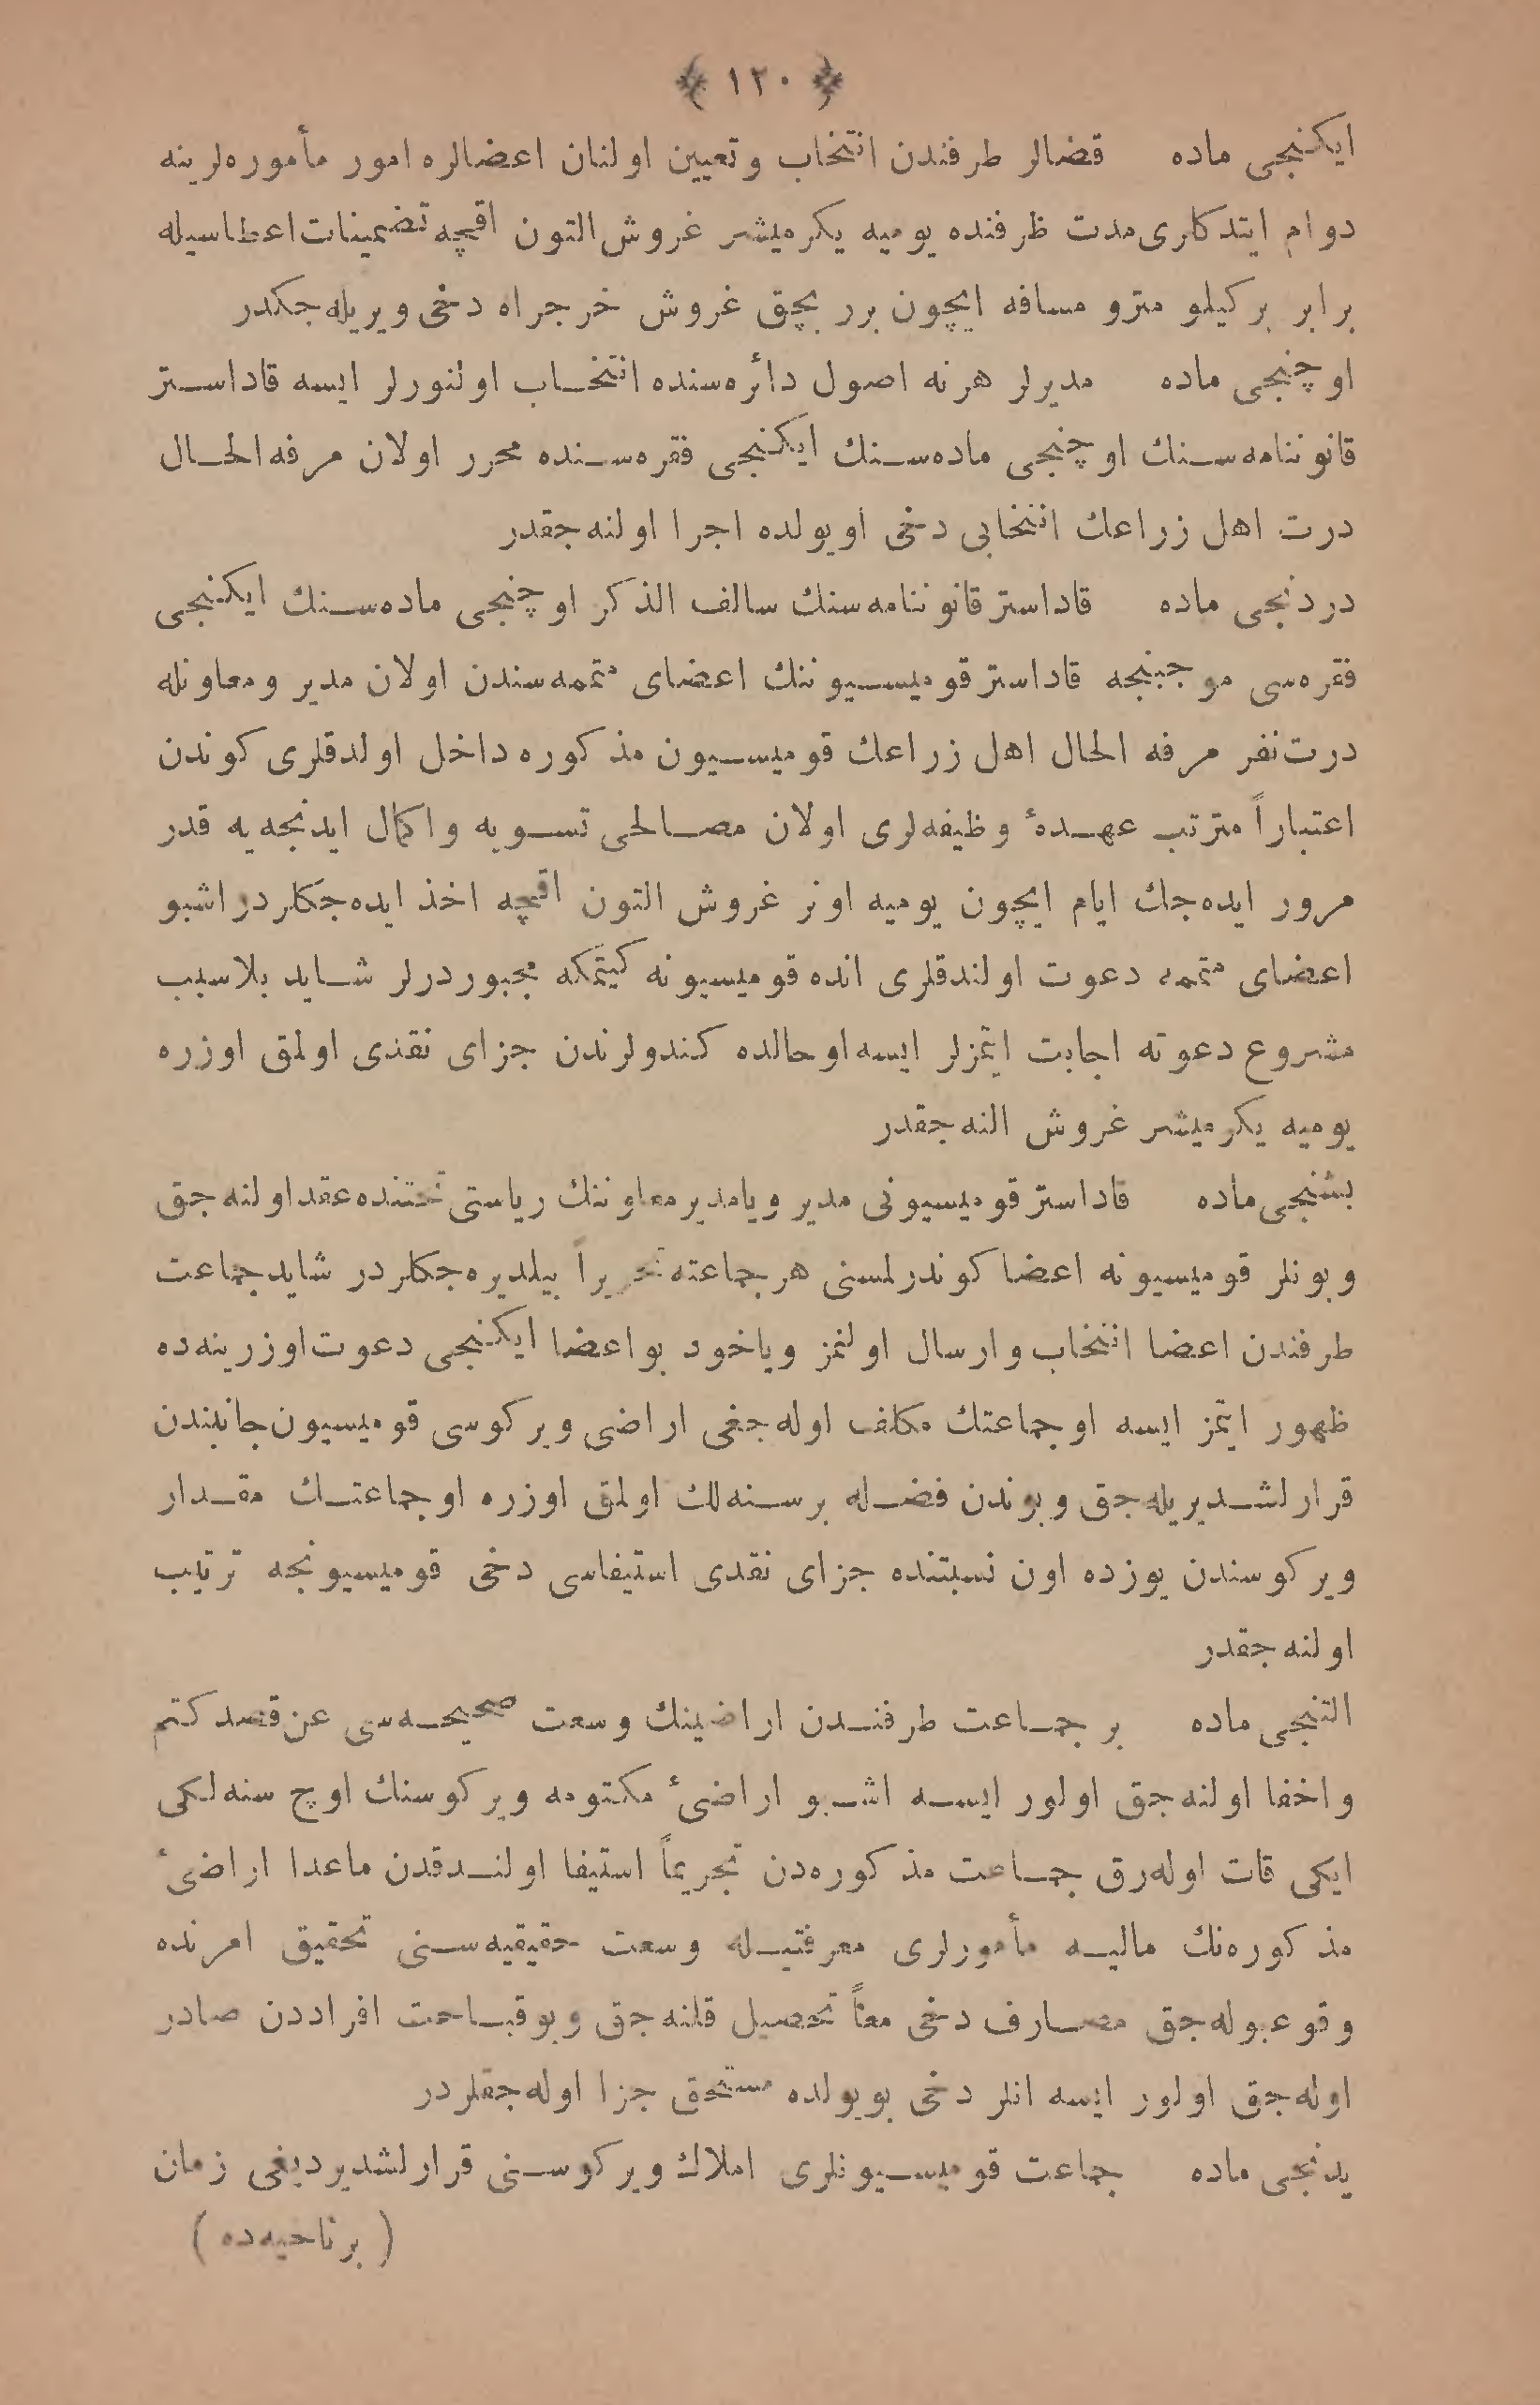 ﴿ ١٢٠ ﴾
ایكنجی ماده قضالر طرفندن انتخاب وتعیین اولنان اعضالره امور مأموره‌لرینه
دوام ایتدكاری مدت ظرفنده یومیه یكرمیشر غروش التون اقچه تضمینات اعطاسیله
برابر بر كیلو مترو مسافه ایچون برر بچق غروش خرجراه دخی ویریله‌جكدر
اوچنجی ماده مدیرلر هرنه اصول دائره‌سنده انتخاب اولنورلر ایسه قاداستر
قانوننامه‌سنك اوچنجی ماده‌سنك ایكنجی فقره‌سنده محرر اولان مرفه‌الحال
درت اهل زراعك انتخابی دخی اویولده اجرا اولنه‌جقدر
دردنجی ماده قاداستر قانوننامه‌سنك سالف الذكر اوچنجی ماده‌سنك ایكنجی
فقره‌سی موجبنجه قاداستر قومیسیوننك اعضای متممه‌سندن اولان مدیر ومعاونله
درت نفر مرفه الحال اهل زراعك قومیسیون مذكوره داخل اولدقلری كوندن
اعتباراً مترتب عهدهٔ وظیفه‌لری اولان مصالحی تسویه واكمال ایدنجه‌یه قدر
مرور ایده‌جك ایام ایچون یومیه اونر غروش التون اقچه اخذ ایده‌جكلردر اشبو
اعضای متممه دعوت اولندقلری انده قومیسیونه كیتمكه مجبوردرلر شاید بلاسبب
مشروع دعوته اجابت ایتمزلر ایسه اوحالده كندولرندن جزای نقدی اولمق اوزره
یومیه یكرمیشر غروش النه‌جقدر
بشنجی ماده قاداستر قومیسیونی مدیر ویامدیر معاوننك ریاستی تحتنده عقد اولنه‌جق
وبونلر قومیسیونه اعضا كوندرلمسنی هر جماعته تحریراً بیلدیره‌جكلردر شاید جماعت
طرفندن اعضا انتخاب وارسال اولنمز ویاخود بواعضا ایكنجی دعوت اوزرینه‌ده
ظهور ایتمز ایسه اوجماعتك مكلف اوله‌جغی اراضی ویركوسی قومیسیون جانبندن
قرارلشدیریله‌جق وبوندن فضله برسنه‌لك اولمق اوزره اوجماعتك مقدار
ویركوسندن یوزده اون نسبتنده جزای نقدی استیفاسی دخی قومیسیونجه ترتیب
اولنه‌جقدر
التنجی ماده بر جماعت طرفندن اراضینك وسعت صحیحه‌سی عن قصد كتم
واخفا اولنه‌جق اولور ایسه اشبو اراضیٔ مكتومه ویركوسنك اوچ سنه‌لكی
ایكی قات اوله‌رق جماعت مذكوره‌دن تجریماً استیفا اولندقدن ماعدا اراضیٔ
مذكوره‌نك مالیه مأمورلری معرفتیله وسعت حقیقیه‌سنی تحقیق امرنده
وقوعبوله‌جق مصارف دخی معاً تحصیل قلنه‌جق وبوقباحت افراددن صادر
اوله‌جق اولور ایسه انلر دخی بویولده مستحق جزا اوله‌جقلردر
یدنجی ماده جماعت قومیسیونلری املاك ویركوسنی قرارلشدیردیغی زمان
( برناحیه‌ده )